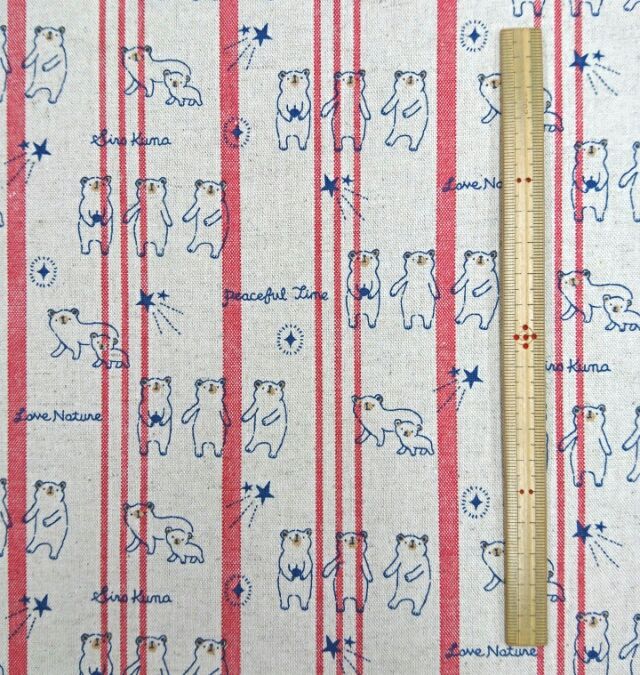 Siro Kuna
Love Na
Peaceful Time
iro Kuna
Love Nature
Siro Kuna
Love Nature